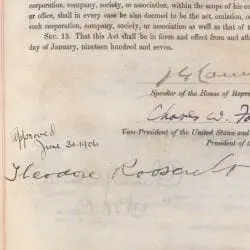 corporation, company, society, or association, within the scope of his em
or office, shall in every case be also deemed to be the act, omission,
such corporation, company, society, or association as well as that of t
SEC. 13. That this Act shall be in force and effect from and after
day of January, nineteen hundred and seven.
J G Cann
Speaker of the House of Repres
Charles W. Fa
Vice-President of the United States and
President of t
Approved
June 30, 1906
Theodore Roosevelt